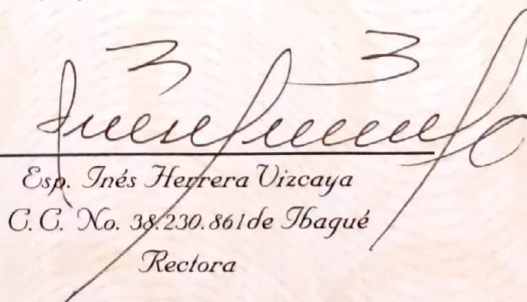 Esp. Inés Herrera Vizcaya
C.C. No. 38.230.861 de Ibagué
Rectora